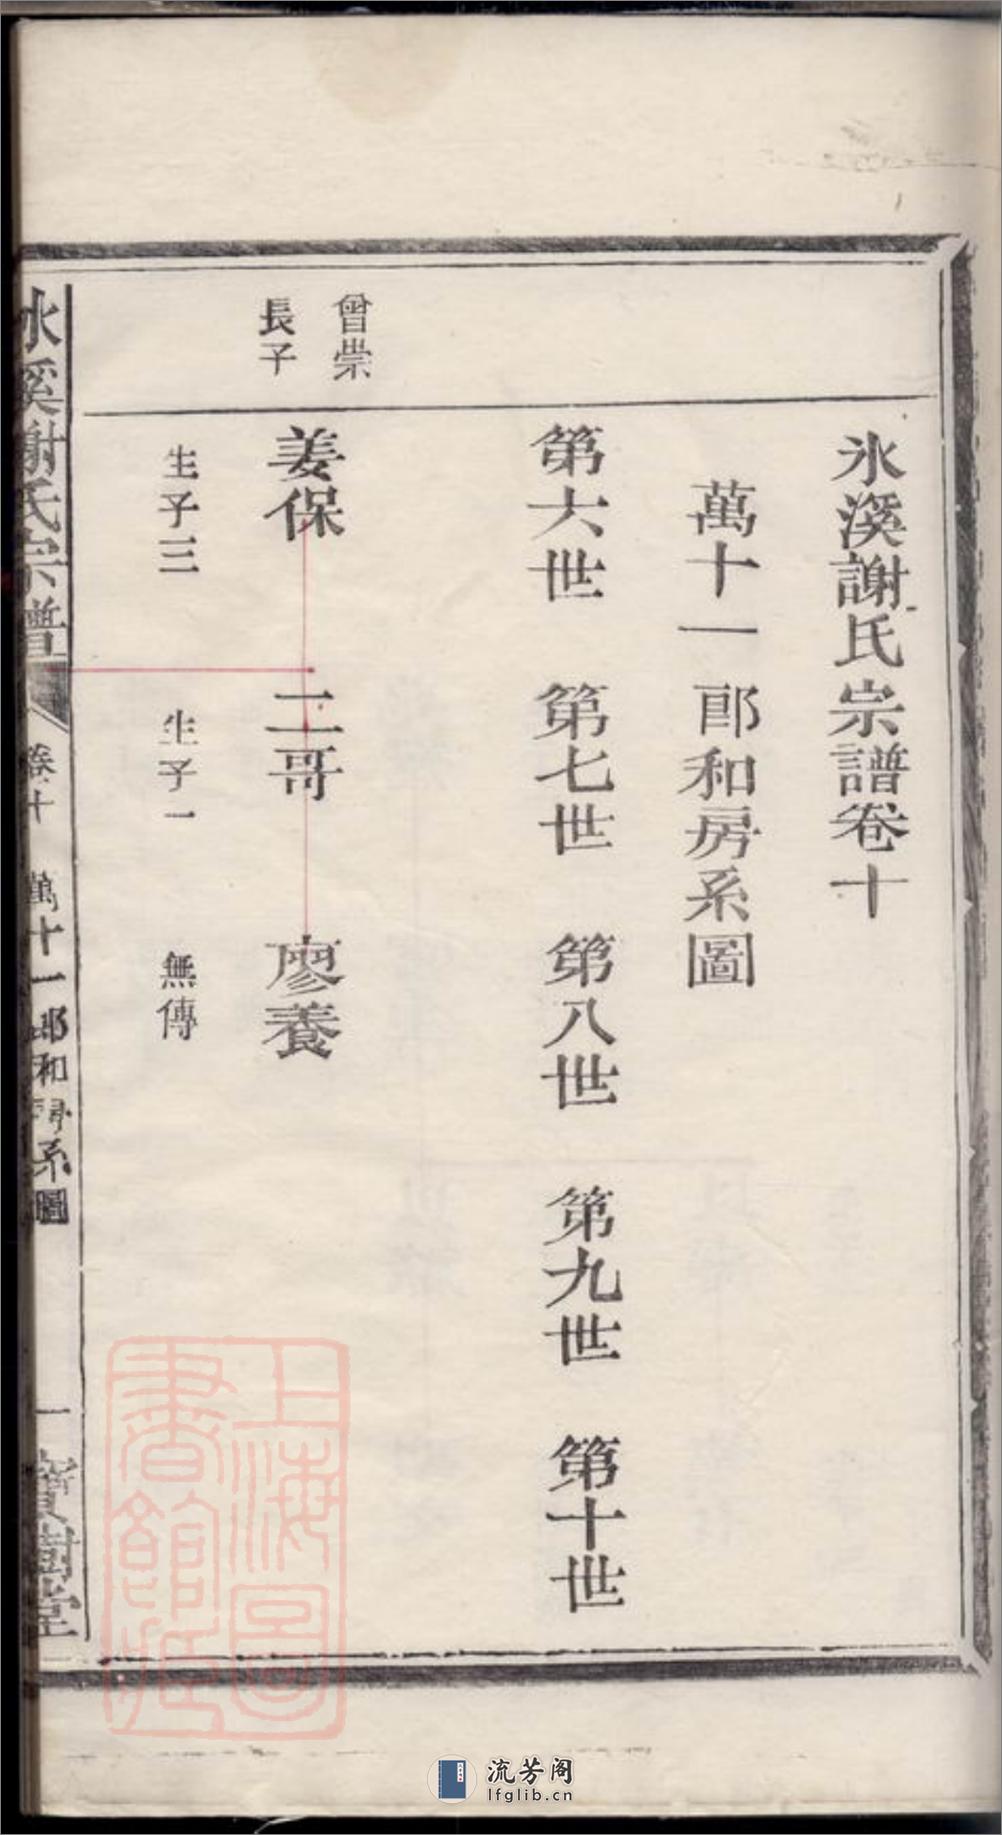 氷溪謝氏宗譜卷十
萬十一郎和房系圖
第六世　第七世　第八世　第九世　第十世
曾崇
長子
姜保　二哥　廖養
生子三　生子一　無傳
氷溪謝氏宗譜　卷十　萬十一郎和房系圖　一　寶樹堂
上海圖書館藏
流芳阁
lfglib.cn